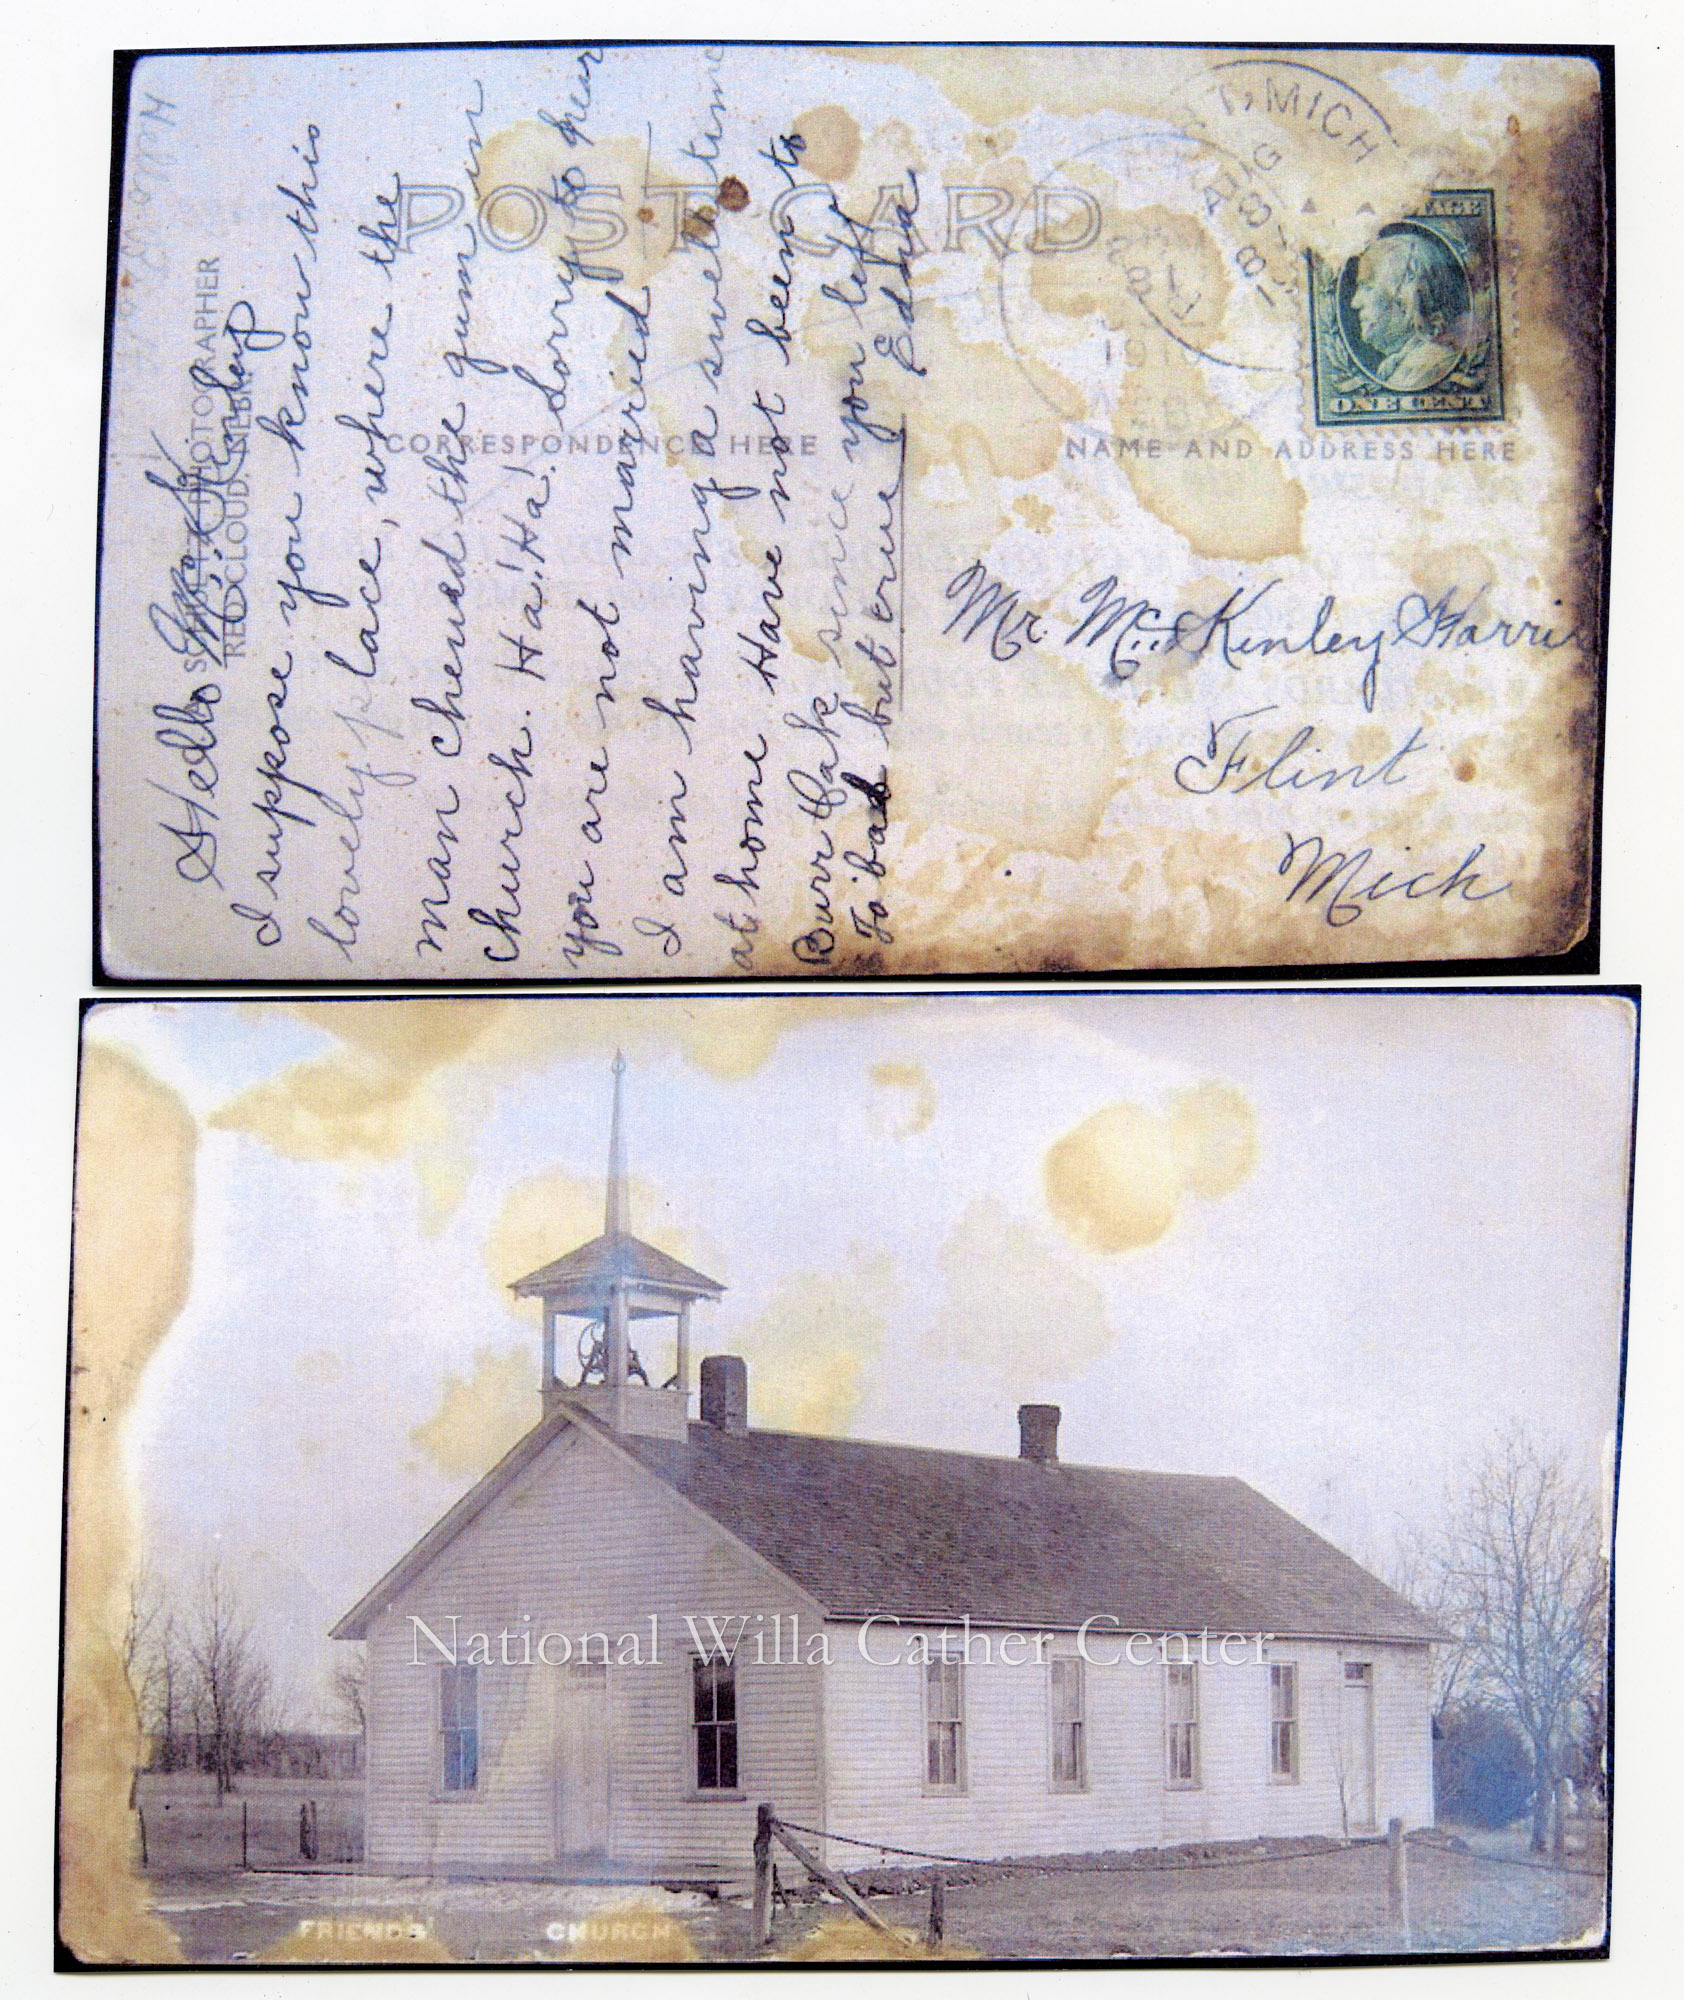 Hello Mc Kinley
I suppose you know this
lovely place, where the
man chewed the gum in
church. Ha! Ha! Sorry to hear
you are not married
I am having a swell time
at home Have not been to
Burr Oak since you left
To bad but true Edna
PHOTOGRAPHER
RED CLOUD, NEBR.
POST CARD
CORRESPONDENCE HERE
NAME AND ADDRESS HERE
T, MICH
AUG
8
1910
ONE CENT
Mr. McKinley Harris
Flint
Mich
National Willa Cather Center
FRIENDS' CHURCH